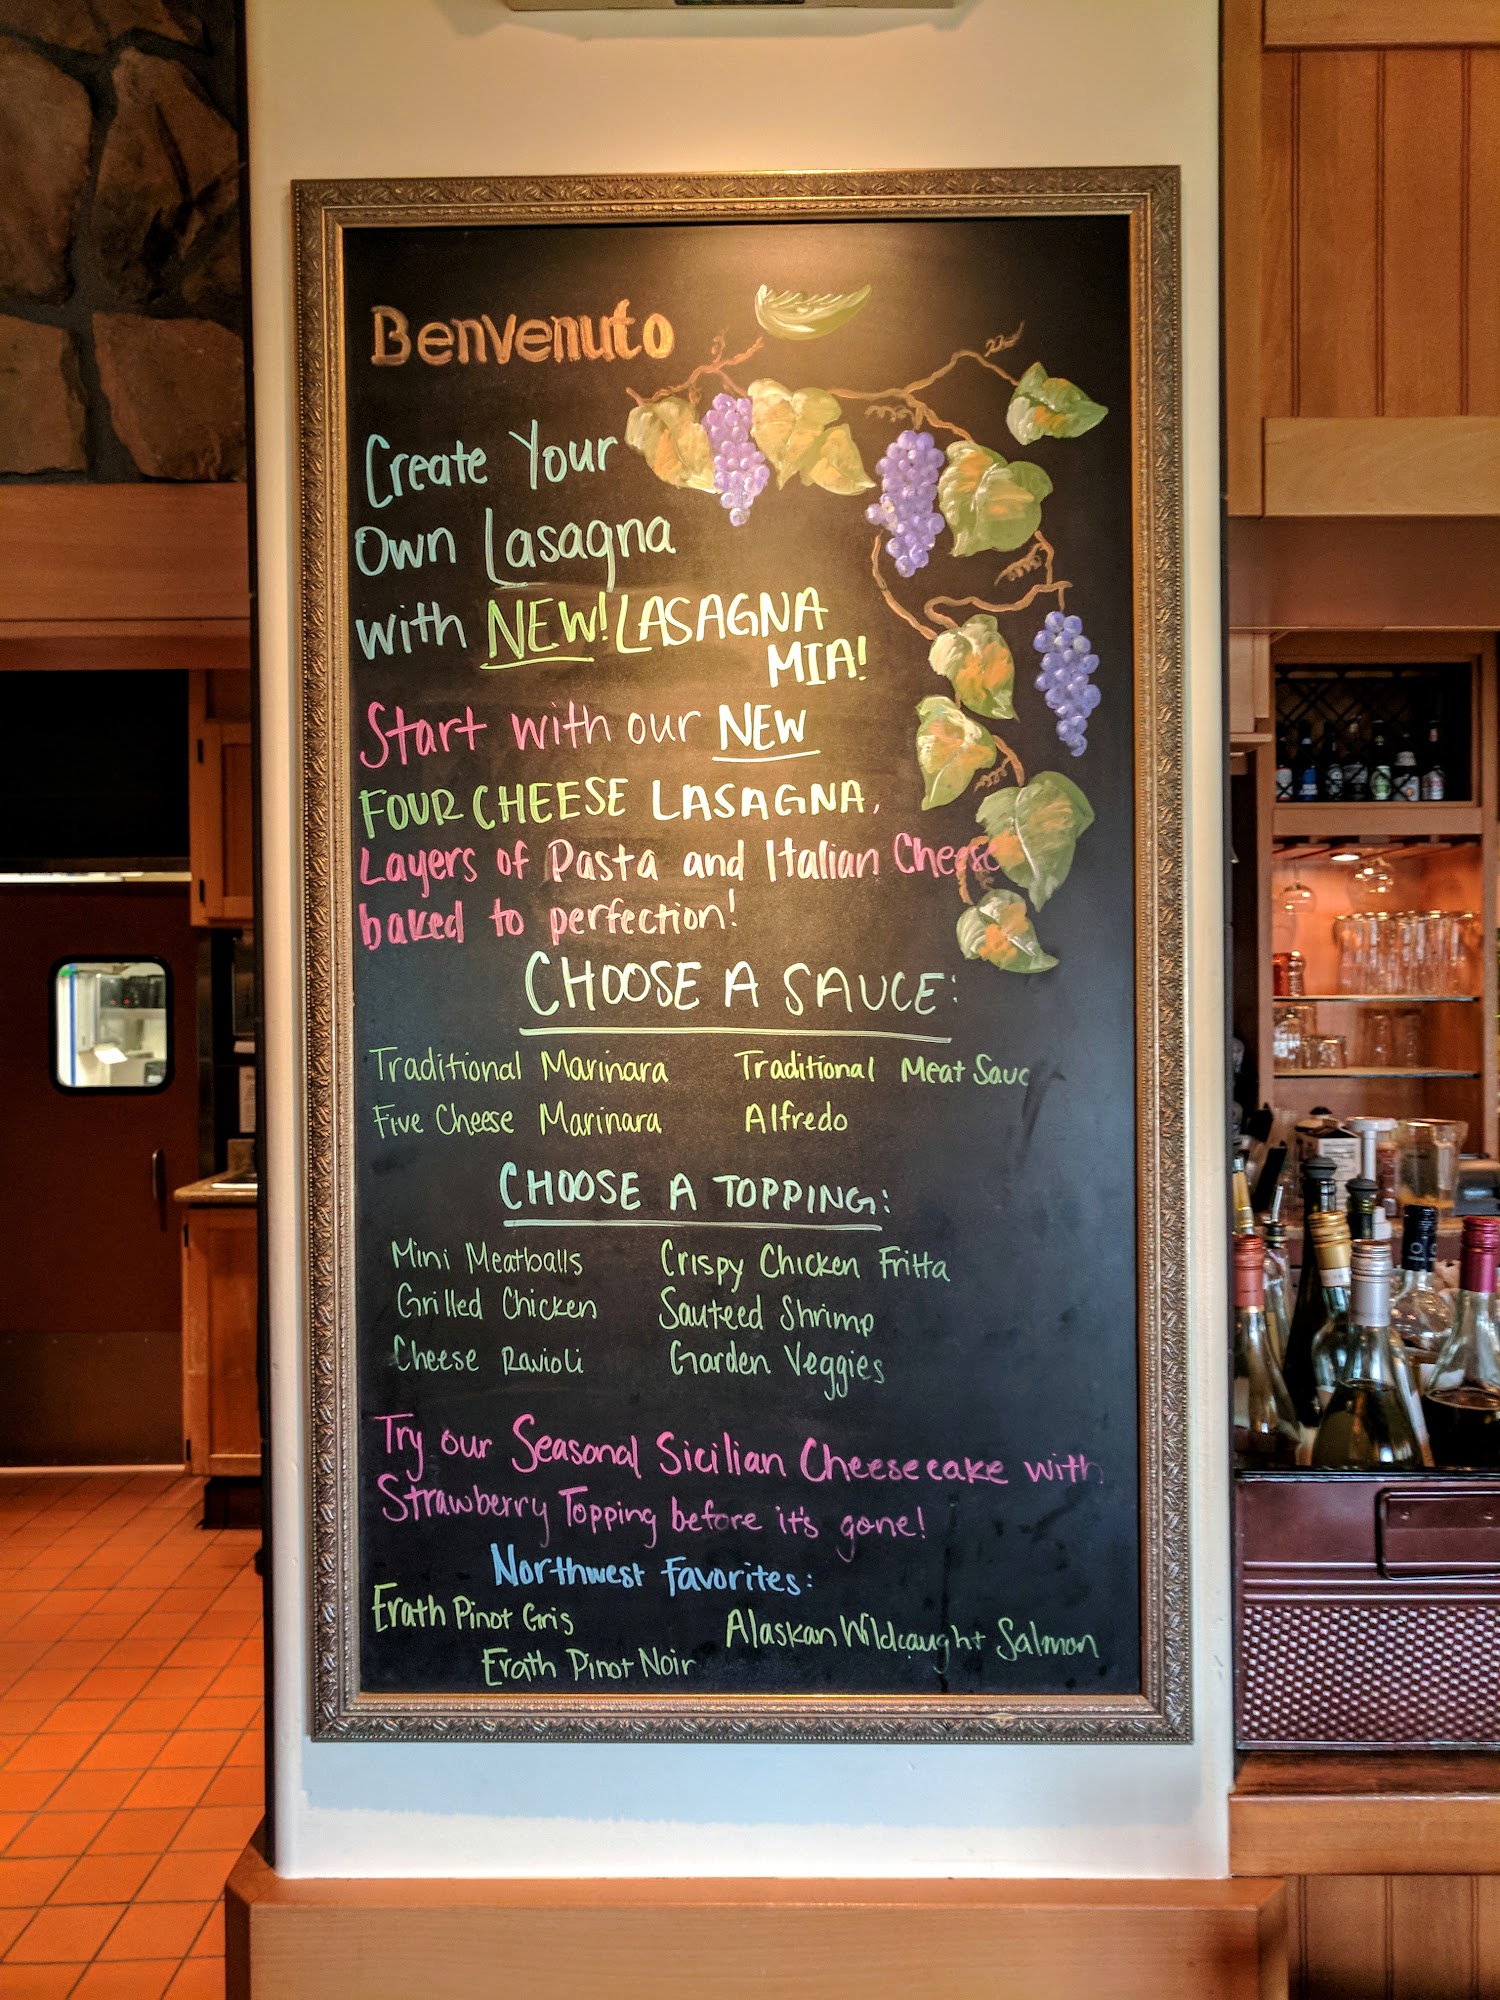 Benvenuto
Create Your
Own Lasagna
with NEW! LASAGNA
MIA!
Start with our NEW
FOUR CHEESE LASAGNA,
Layers of Pasta and Italian Cheese
baked to perfection!
CHOOSE A SAUCE:
Traditional Marinara Traditional Meat Sauc
Five Cheese Marinara Alfredo
CHOOSE A TOPPING:
Mini Meatballs Crispy Chicken Fritta
Grilled Chicken Sauteed Shrimp
Cheese Ravioli Garden Veggies
Try our Seasonal Sicilian Cheesecake with
Strawberry Topping before it's gone!
Northwest Favorites:
Erath Pinot Gris Alaskan Wildcaught Salmon
Erath Pinot Noir